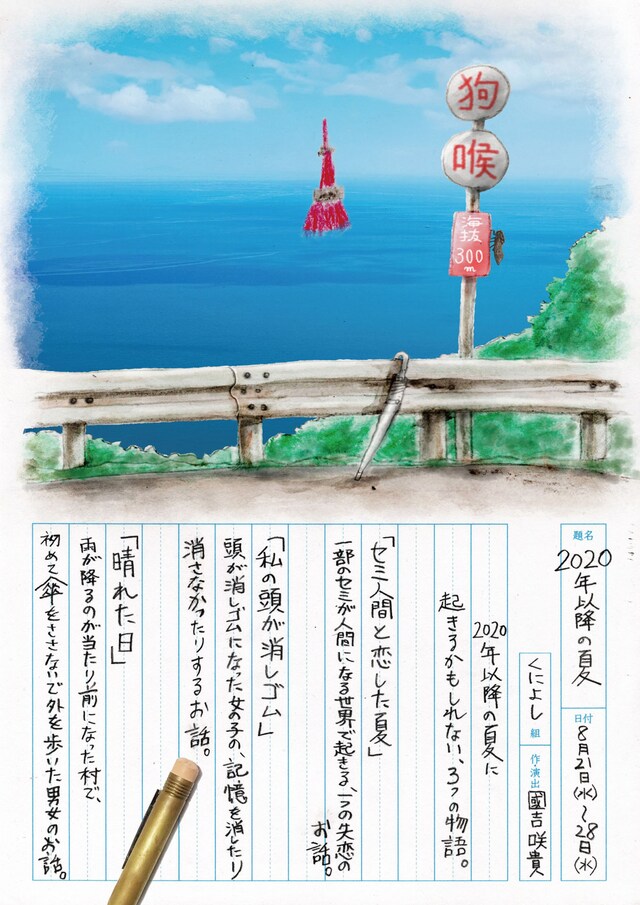 狗
喉
海抜
300
m
題名
2020年以降の夏
日付
8月21日(水)～28日(水)
くによし
組
作・演出
國吉咲貴
2020年以降の夏に
起きるかもしれない、3つの物語。
「セミ人間と恋した夏」
一部のセミが人間になる世界で起きる、一つの失恋の
お話。
「私の頭が消しゴム」
頭が消しゴムになった女の子の、記憶を消したり
消さなかったりするお話。
「晴れた日」
雨が降るのが当たり前になった村で、
初めて傘をささないで外を歩いた男女のお話。